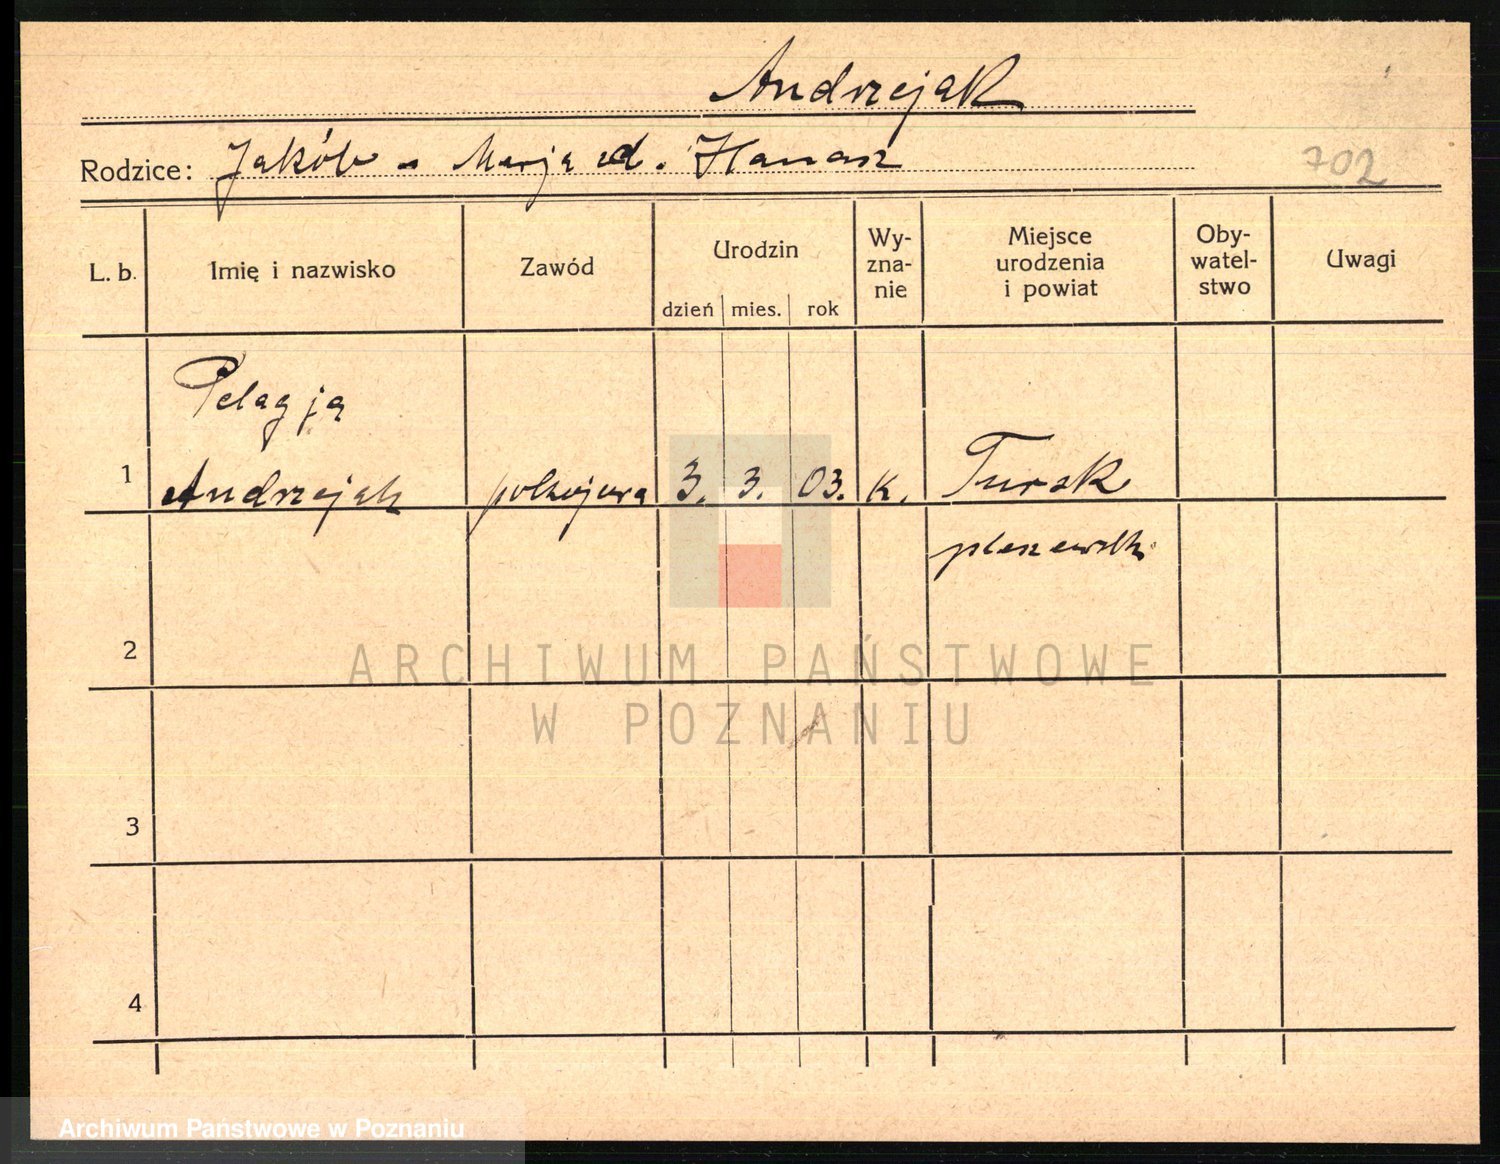 Andrzejak
Rodzice: Jakób - Marja zd. Hanasz
702
L. b.
Imię i nazwisko
Zawód
Urodzin
dzień mies. rok
Wy-
zna-
nie
Miejsce
urodzenia
i powiat
Oby-
watel-
stwo
Uwagi
Pelagja
1 Andrzejak pokojowa 3. 3. 03. k. Tursk
pleszewski
2
ARCHIWUM PAŃSTWOWE
W POZNANIU
3
4
Archiwum Państwowe w Poznaniu